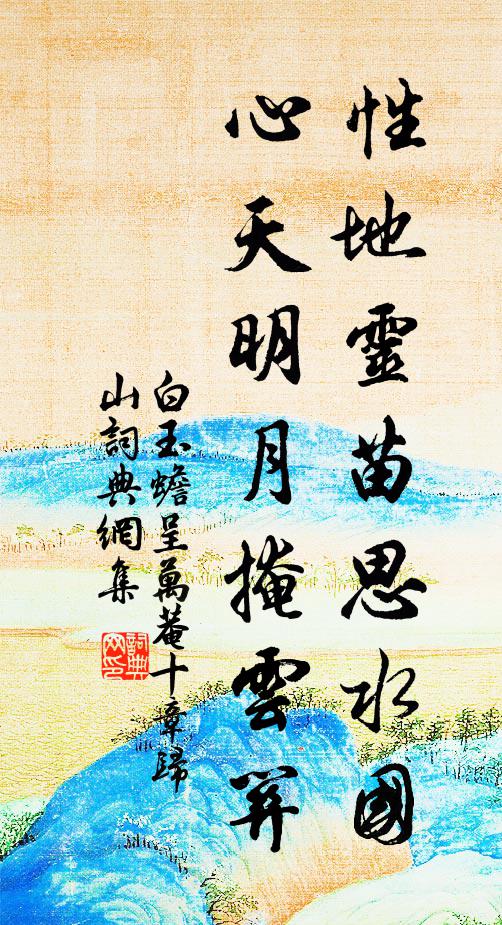 性地靈苗思水國
心天明月掩雲關
白玉蟾呈萬菴十章歸
山詞典網集
詞典